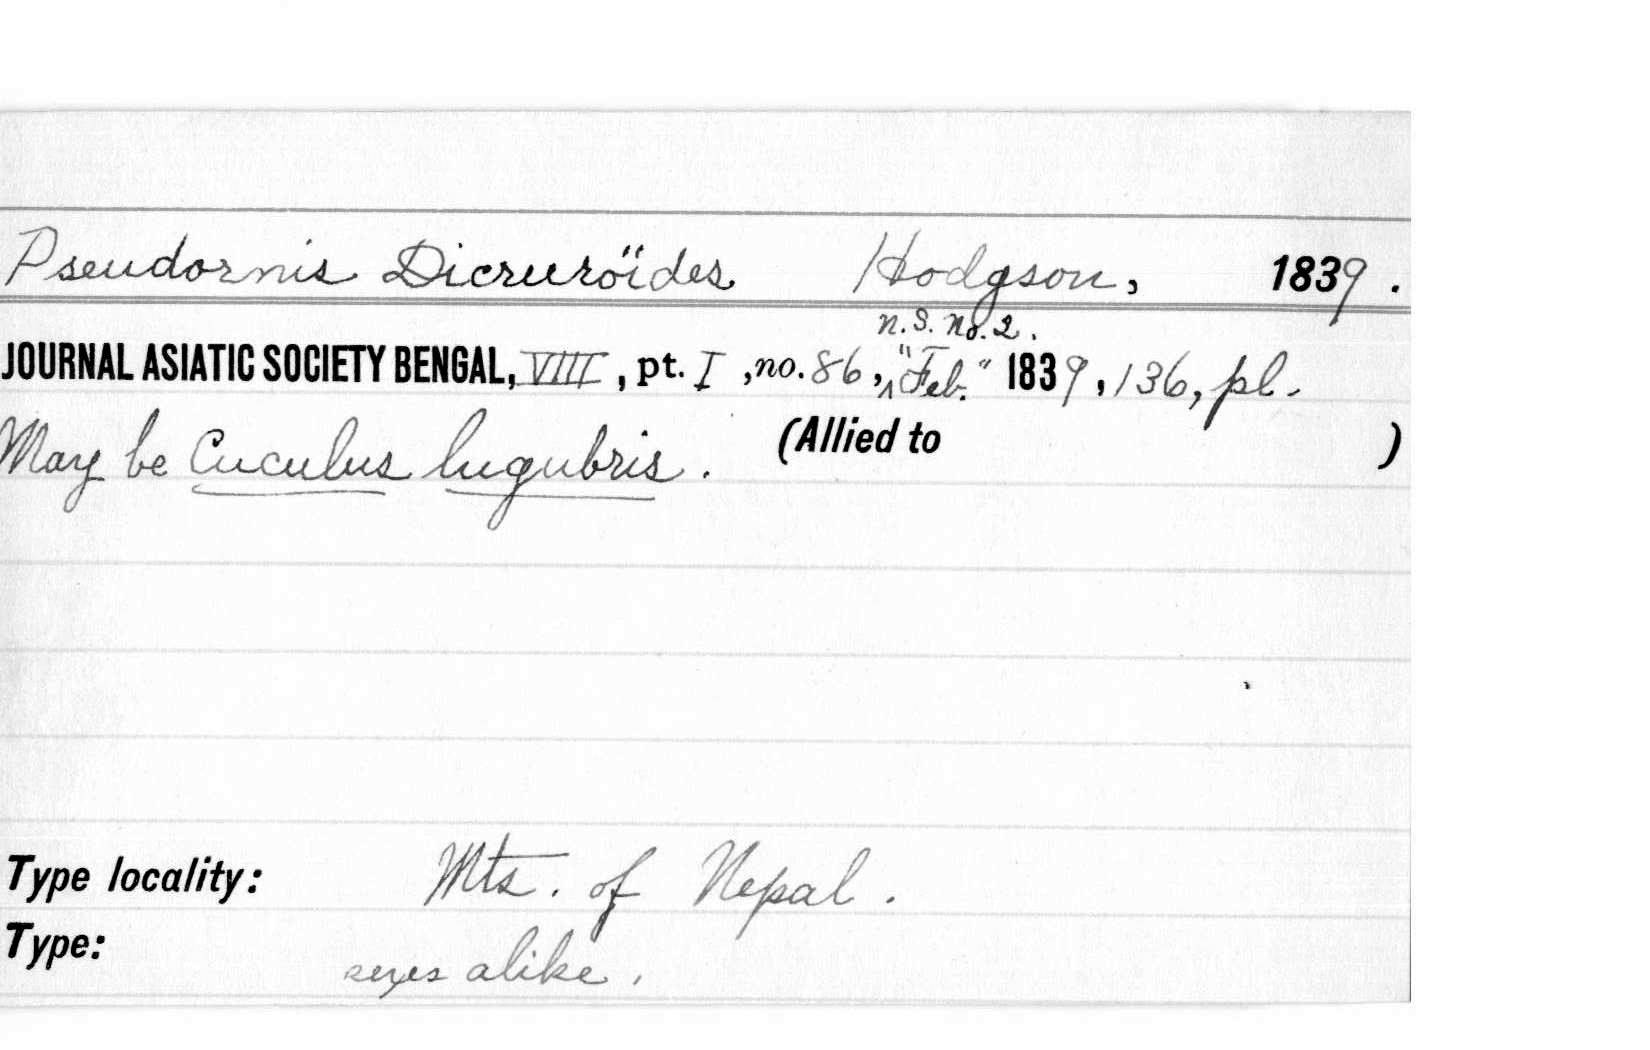 Pseudornis Dicruröides Hodgson, 1839.
n.S. No. 2.
JOURNAL ASIATIC SOCIETY BENGAL, VIII, pt. I, no. 86, ‸"Feb." 1839, 136, pl.
May be Cuculus lugubris. (Allied to )
Type locality: Mts. of Nepal.
Type:
sexes alike.